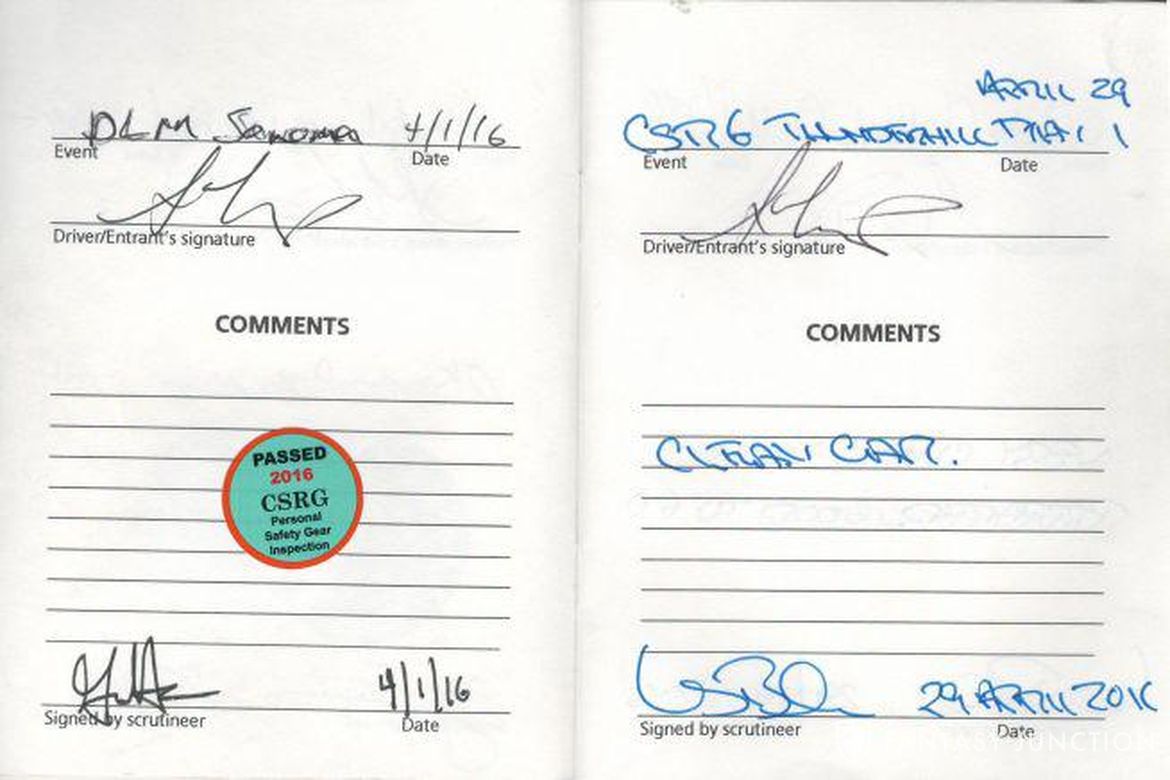 DLM Sonoma 4/1/16
Event Date
Driver/Entrant's signature
COMMENTS
PASSED
2016
CSRG
Personal
Safety Gear
Inspection
4/1/16
Signed by scrutineer Date
APRIL 29
CSRG THUNDERHILL DAY 1
Event Date
Driver/Entrant's signature
COMMENTS
CLEAN CAR.
29 APRIL 2016
Signed by scrutineer Date
FANTASY JUNCTION